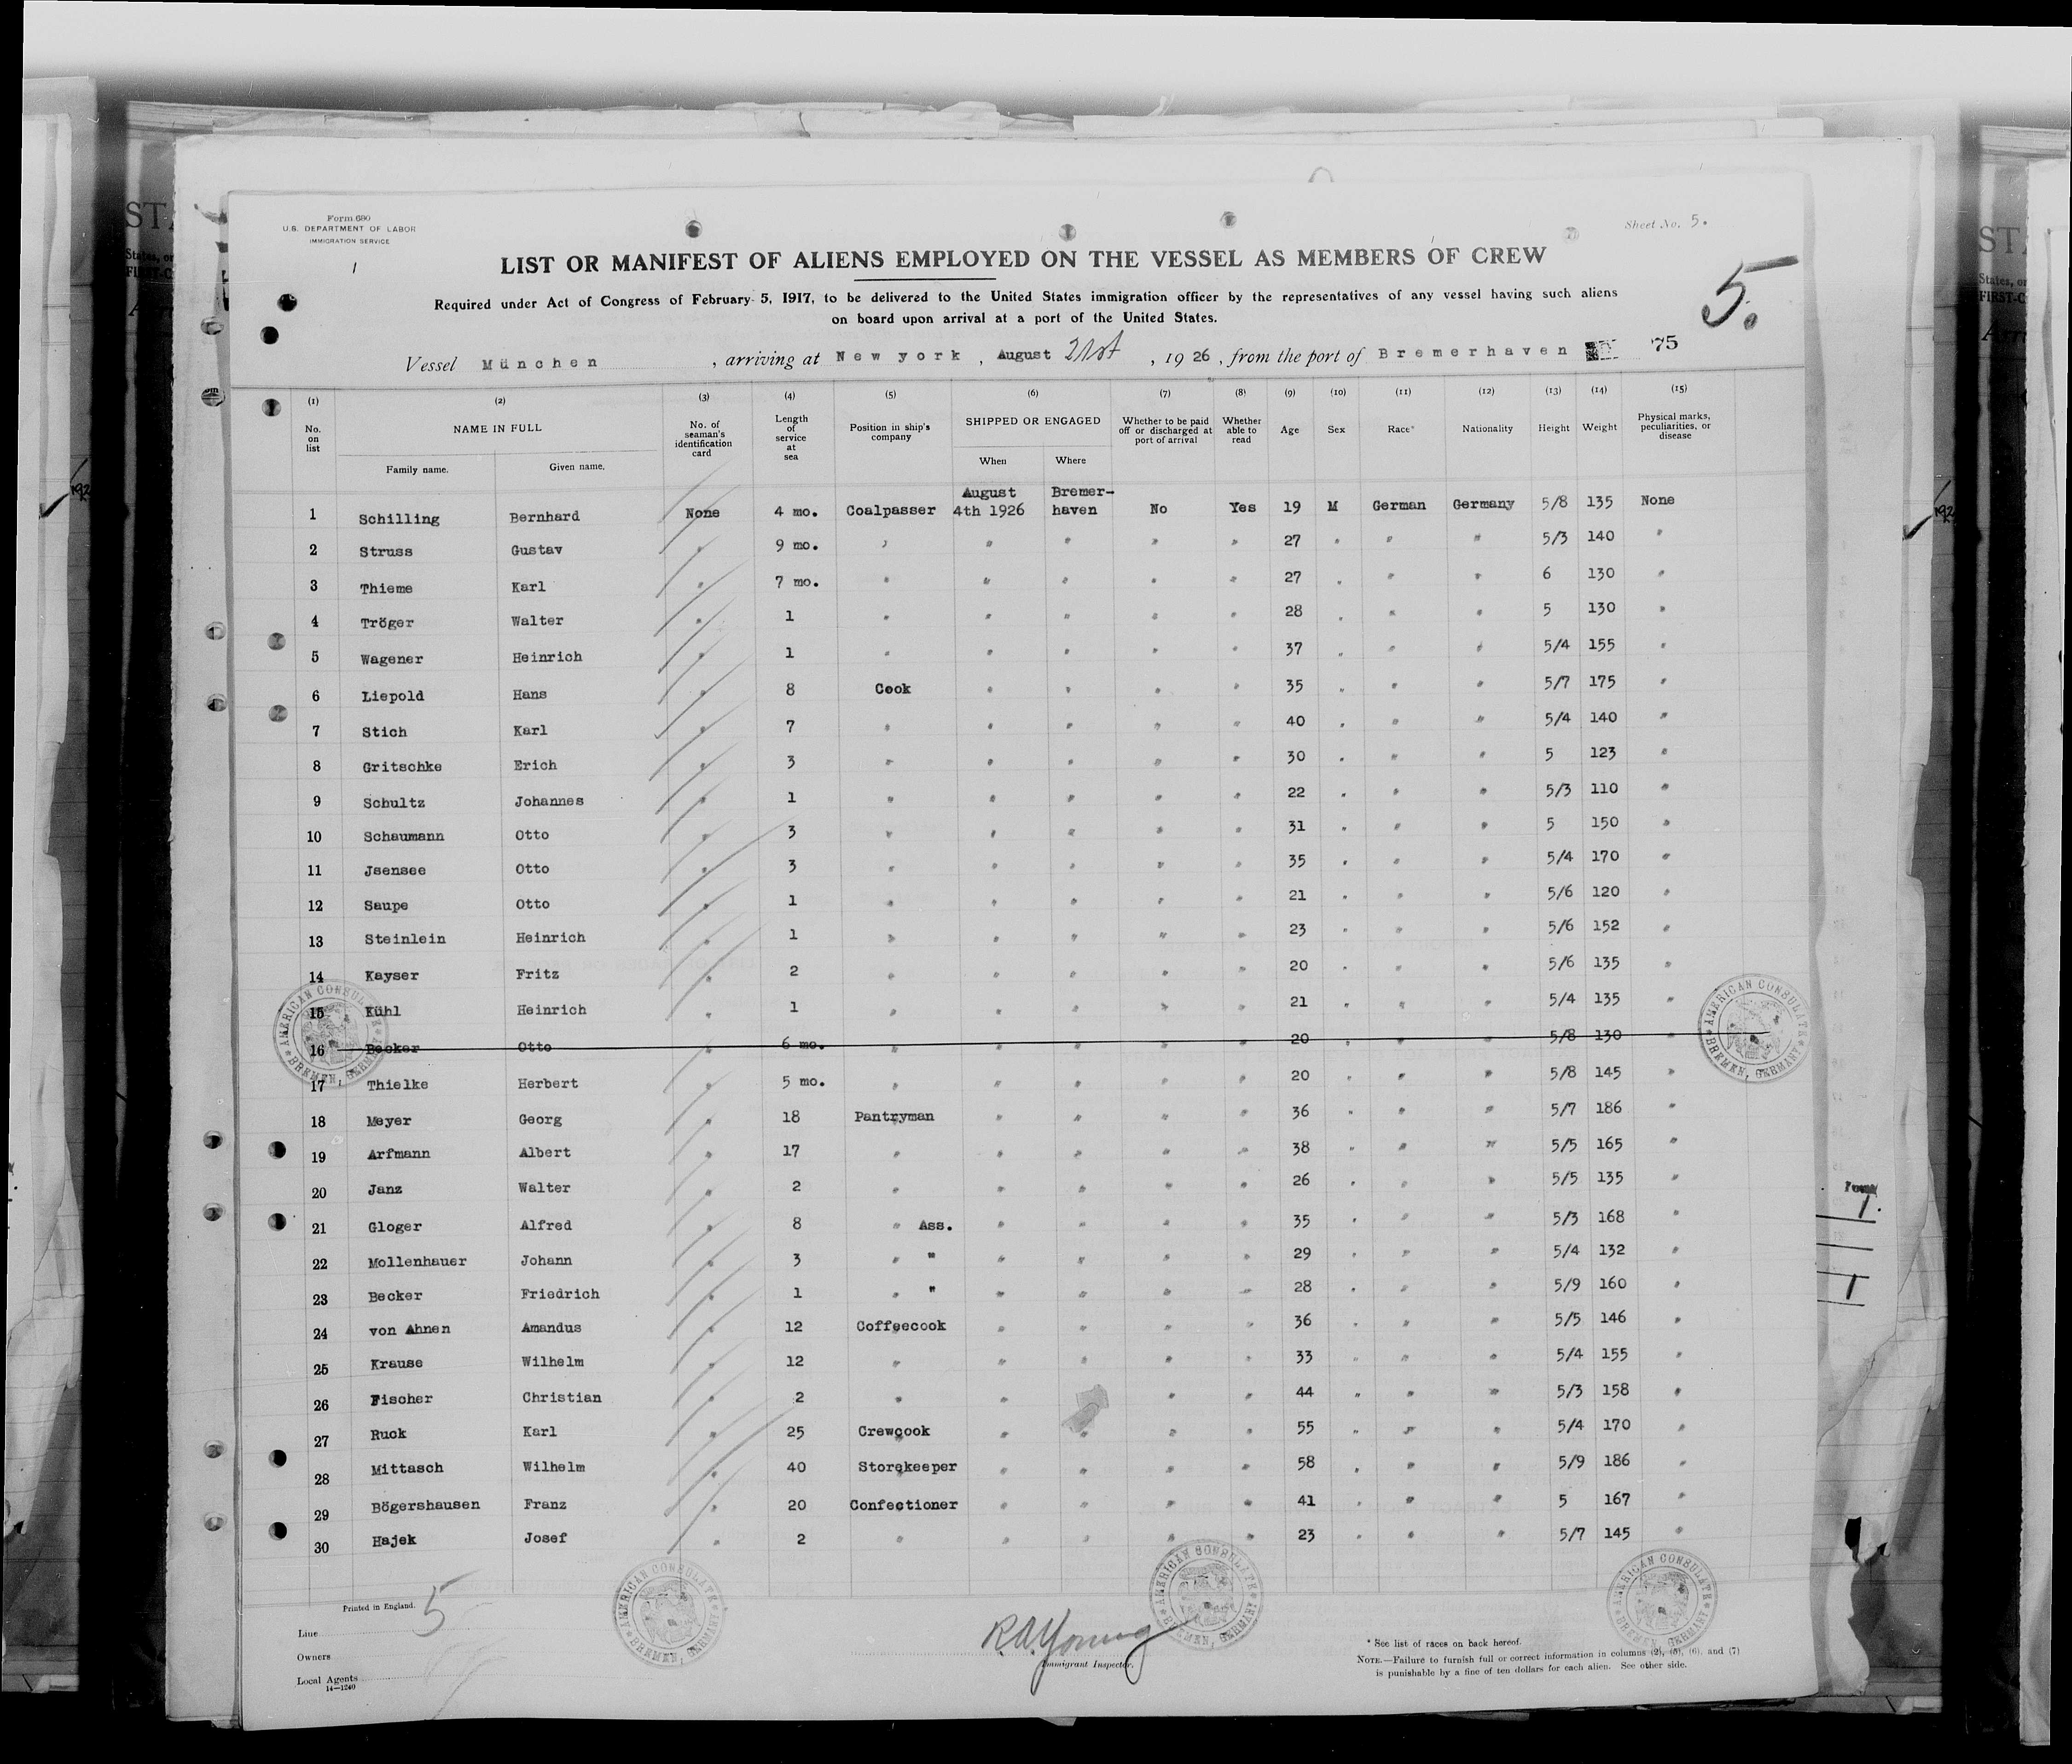 Form 680
U.S. DEPARTMENT OF LABOR
IMMIGRATION SERVICE
Sheet No. 5.
1
LIST OR MANIFEST OF ALIENS EMPLOYED ON THE VESSEL AS MEMBERS OF CREW
5.
Required under Act of Congress of February 5, 1917, to be delivered to the United States immigration officer by the representatives of any vessel having such aliens
on board upon arrival at a port of the United States.
Vessel München, arriving at New york, August 21st, 1926, from the port of Bremerhaven 75
(1) (2) (3) (4) (5) (6) (7) (8) (9) (10) (11) (12) (13) (14) (15)
No. on list NAME IN FULL Family name. Given name. No. of seaman's identification card Length of service at sea Position in ship's company SHIPPED OR ENGAGED When Where Whether to be paid off or discharged at port of arrival Whether able to read Age Sex Race* Nationality Height Weight Physical marks, peculiarities, or disease
1 Schilling Bernhard None 4 mo. Coalpasser August 4th 1926 Bremer-haven No Yes 19 M German Germany 5/8 135 None
2 Struss Gustav " 9 mo. " " " " " 27 " " " 5/3 140 "
3 Thieme Karl " 7 mo. " " " " " 27 " " " 6 130 "
4 Tröger Walter " 1 " " " " " 28 " " " 5 130 "
5 Wagener Heinrich " 1 " " " " " 37 " " " 5/4 155 "
6 Liepold Hans " 8 Cook " " " " 35 " " " 5/7 175 "
7 Stich Karl " 7 " " " " " 40 " " " 5/4 140 "
8 Gritschke Erich " 3 " " " " " 30 " " " 5 123 "
9 Schultz Johannes " 1 " " " " " 22 " " " 5/3 110 "
10 Schaumann Otto " 3 " " " " " 31 " " " 5 150 "
11 Jsensee Otto " 3 " " " " " 35 " " " 5/4 170 "
12 Saupe Otto " 1 " " " " " 21 " " " 5/6 120 "
13 Steinlein Heinrich " 1 " " " " " 23 " " " 5/6 152 "
14 Kayser Fritz " 2 " " " " " 20 " " " 5/6 135 "
15 Kühl Heinrich " 1 " " " " " 21 " " " 5/4 135 "
16 Becker Otto " 6 mo. " " " " " 20 " " " 5/8 130 "
17 Thielke Herbert " 5 mo. " " " " " 20 " " " 5/8 145 "
18 Meyer Georg " 18 Pantryman " " " " 36 " " " 5/7 186 "
19 Arfmann Albert " 17 " " " " " 38 " " " 5/5 165 "
20 Janz Walter " 2 " " " " " 26 " " " 5/5 135 "
21 Gloger Alfred " 8 " Ass. " " " " 35 " " " 5/3 168 "
22 Mollenhauer Johann " 3 " " " " " " 29 " " " 5/4 132 "
23 Becker Friedrich " 1 " " " " " " 28 " " " 5/9 160 "
24 von Ahnen Amandus " 12 Coffeecook " " " " 36 " " " 5/5 146 "
25 Krause Wilhelm " 12 " " " " " 33 " " " 5/4 155 "
26 Fischer Christian " 2 " " " " " 44 " " " 5/3 158 "
27 Ruck Karl " 25 Crewcook " " " " 55 " " " 5/4 170 "
28 Mittasch Wilhelm " 40 Storekeeper " " " " 58 " " " 5/9 186 "
29 Bögershausen Franz " 20 Confectioner " " " " 41 " " " 5 167 "
30 Hajek Josef " 2 " " " " " 23 " " " 5/7 145 "
AMERICAN CONSULATE BREMEN, GERMANY
AMERICAN CONSULATE BREMEN, GERMANY
AMERICAN CONSULATE BREMEN, GERMANY
AMERICAN CONSULATE BREMEN, GERMANY
AMERICAN CONSULATE BREMEN, GERMANY
Printed in England. 5
Line
Owners
Local Agents
14—1240
R.A. Young
Immigrant Inspector.
* See list of races on back hereof.
NOTE.—Failure to furnish full or correct information in columns (2), (5), (6), and (7)
is punishable by a fine of ten dollars for each alien. See other side.